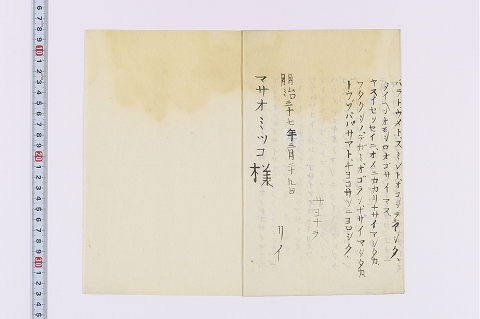 バラトウメトスミレト
タイソオモシロオゴサイマス
ヤスイセンセイニ、オメニカカリナサイマシタカ、
ワタクシノテガミ、オゴランナサイマシタカ、
ババサマト、チヨコサンニヨロシク、
サヨナラ
リイ
明治三十七年三月二十九日
マサオミツコ様